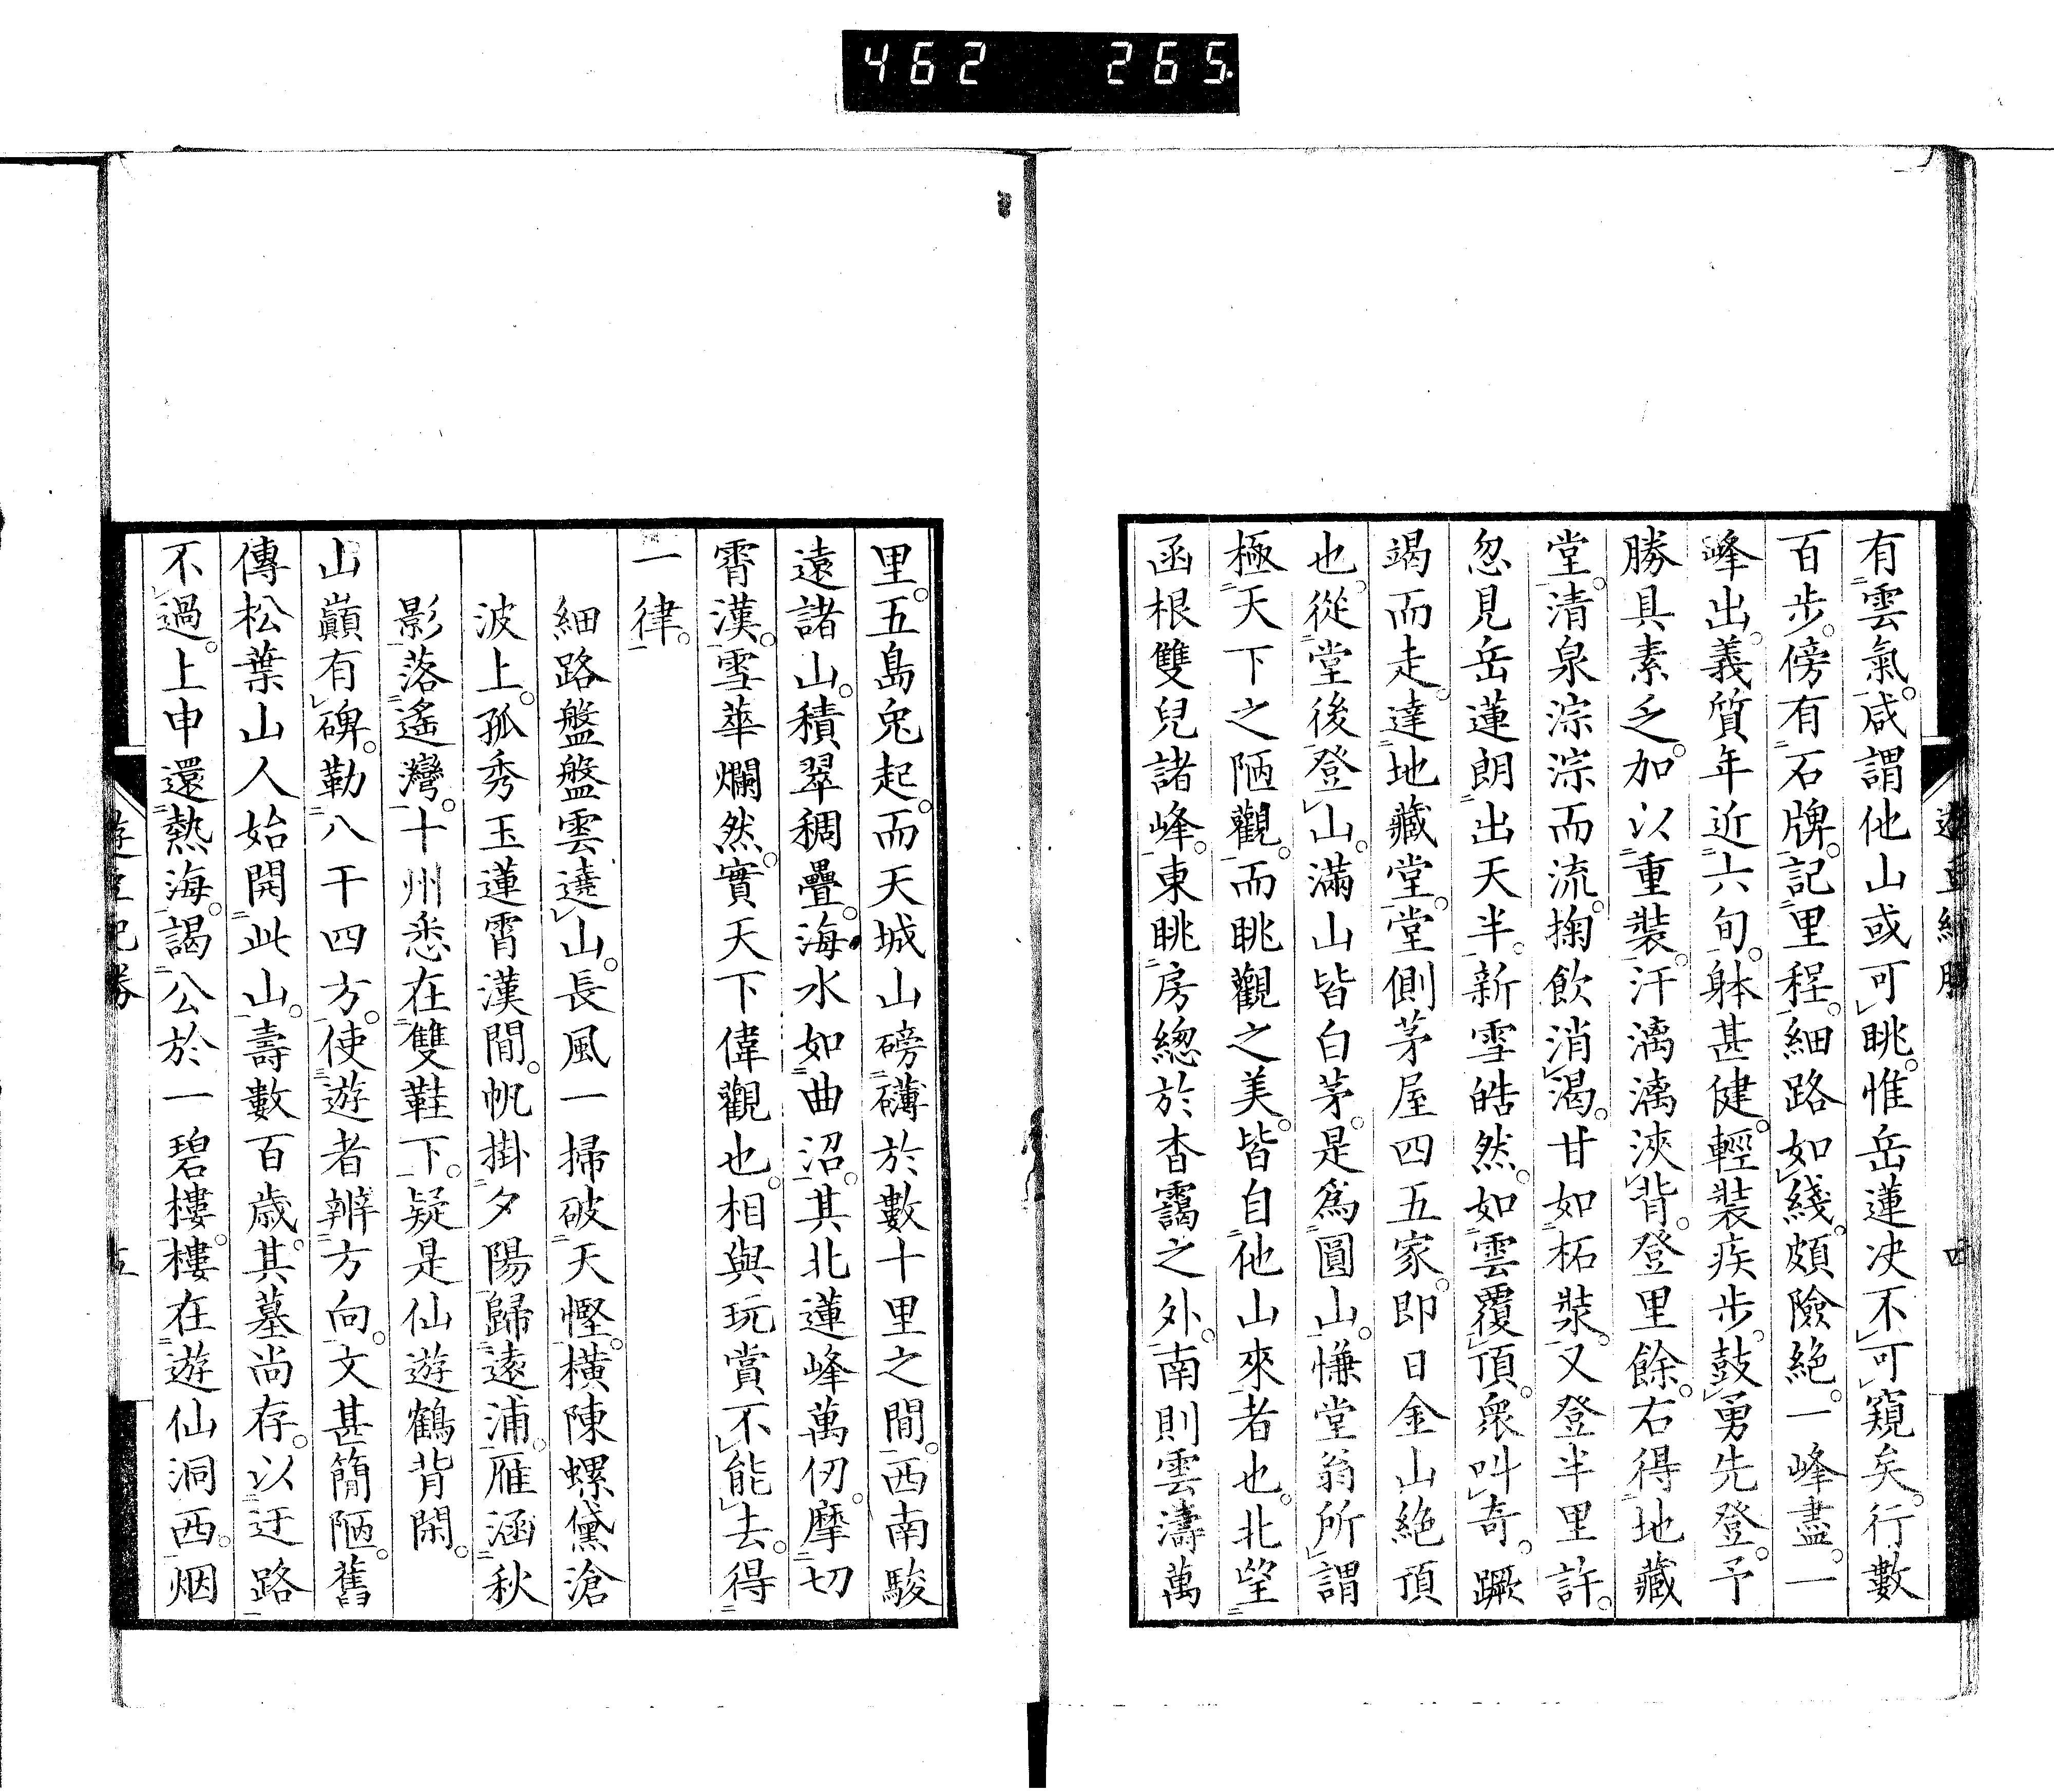 462 265.
有雲氣。咸謂他山或可眺。惟岳蓮决不可窺矣。行數
百步。傍有石牌。記里程。細路如綫。頗險絶。一峰盡。一
峰出。義質年近六旬。躰甚健。輕裝疾步。鼓勇先登。予
勝具素乏。加以重裝。汗漓漓浹背。登里餘。右得地藏
堂。清泉淙淙而流。掬飲消渴。甘如柘漿。又登半里許。
忽見岳蓮朗出天半。新雪皓然。如雲覆頂。衆叫奇。蹶
竭而走。達地藏堂。堂側茅屋四五家。即日金山絶頂
也。從堂後登山。滿山皆白茅。是爲圓山。慊堂翁所謂
極天下之陋觀。而眺觀之美。皆自他山來者也。北望
函根雙兒諸峰。東眺房總於杳靄之外。南則雲濤萬
里。五島兔起。而天城山磅礴於數十里之間。西南駿
遠諸山。積翠稠疊。海水如曲沼。其北蓮峰萬仞。摩切
霄漢。雪華爛然。實天下偉觀也。相與玩賞不能去。得
一律。
細路盤盤雲遶山。長風一掃破天慳。橫陳螺黛滄
波上。孤秀玉蓮霄漢間。帆掛夕陽歸遠浦。雁涵秋
影落遙灣。十州悉在雙鞋下。疑是仙遊鶴背閑。
山巓有碑。勒八干四方。使遊者辨方向。文甚簡陋。舊
傳松葉山人始開此山。壽數百歳。其墓尚存。以迂路
不過。上申還熱海。謁公於一碧樓。樓在遊仙洞西。烟